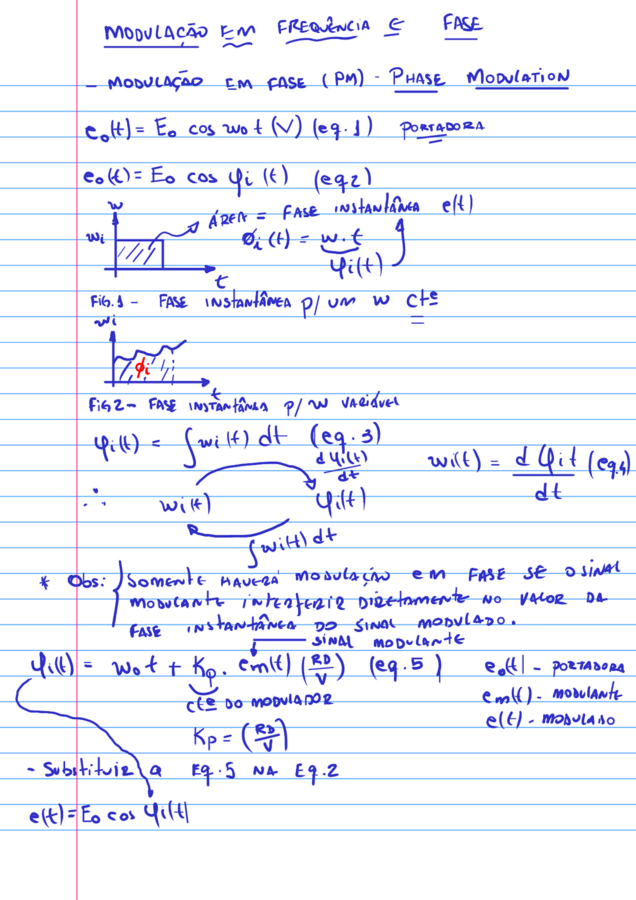 MODULAÇÃO EM FREQUÊNCIA E FASE
- MODULAÇÃO EM FASE (PM) - PHASE MODULATION
e₀(t) = E₀ cos w₀t (V) (eq.1) PORTADORA
e₀(t) = E₀ cos φi (t) (eq2)
w
wi
ÁREA = FASE INSTANTÂNEA e(t)
Øi (t) = w.t
φi(t)
t
FIG.1 - FASE INSTANTÂNEA P/ UM W cte
wi
Øi
t
FIG2 - FASE INSTANTÂNEA P/ W VARIÁVEL
φi(t) = ∫wi(t) dt (eq.3)
wi(t) = d φit / dt (eq.4)
dφi(t)/dt
∴ wi(t) φi(t)
∫wi(t) dt
* Obs: SOMENTE HAVERÁ MODULAÇÃO em FASE SE O SINAL
MODULANTE INTERFERIR DIRETAMENTE NO VALOR DA
FASE INSTANTÂNEA DO SINAL MODULADO.
SINAL MODULANTE
φi(t) = w₀t + Kp. em(t) (RD/V) (eq.5)
e₀(t) - PORTADORA
cte DO MODULADOR
em(t) - MODULANTE
e(t) - MODULADO
Kp = (RD/V)
- Substituir a Eq.5 NA Eq.2
e(t) = E₀ cos φi(t)